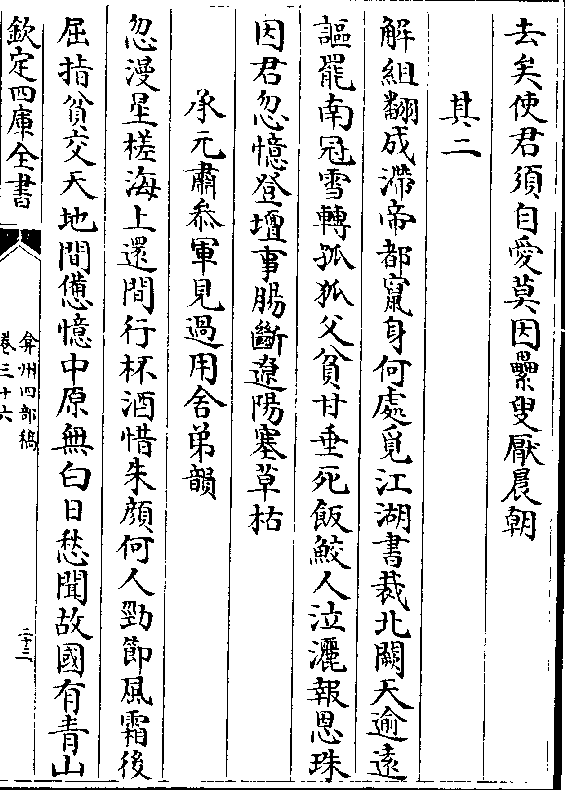 去矣使君須自愛莫因㬥叟厭晨朝
其二
解組翻成滯帝都竄身何處覓江湖書裁北闕天逾遠
謳罷南冠雪轉孤狐父貧甘垂死飯鮫人泣灑報恩珠
因君忽憶登壇事腸斷遼陽塞草枯
承元肅叅軍見過用舍弟韻
忽漫星槎海上還間行杯酒惜朱顔何人勁節風霜後
屈指貧交天地間憊憶中原無白日愁聞故國有青山
欽定四庫全書
弇州四部稿
卷三十六
二十三